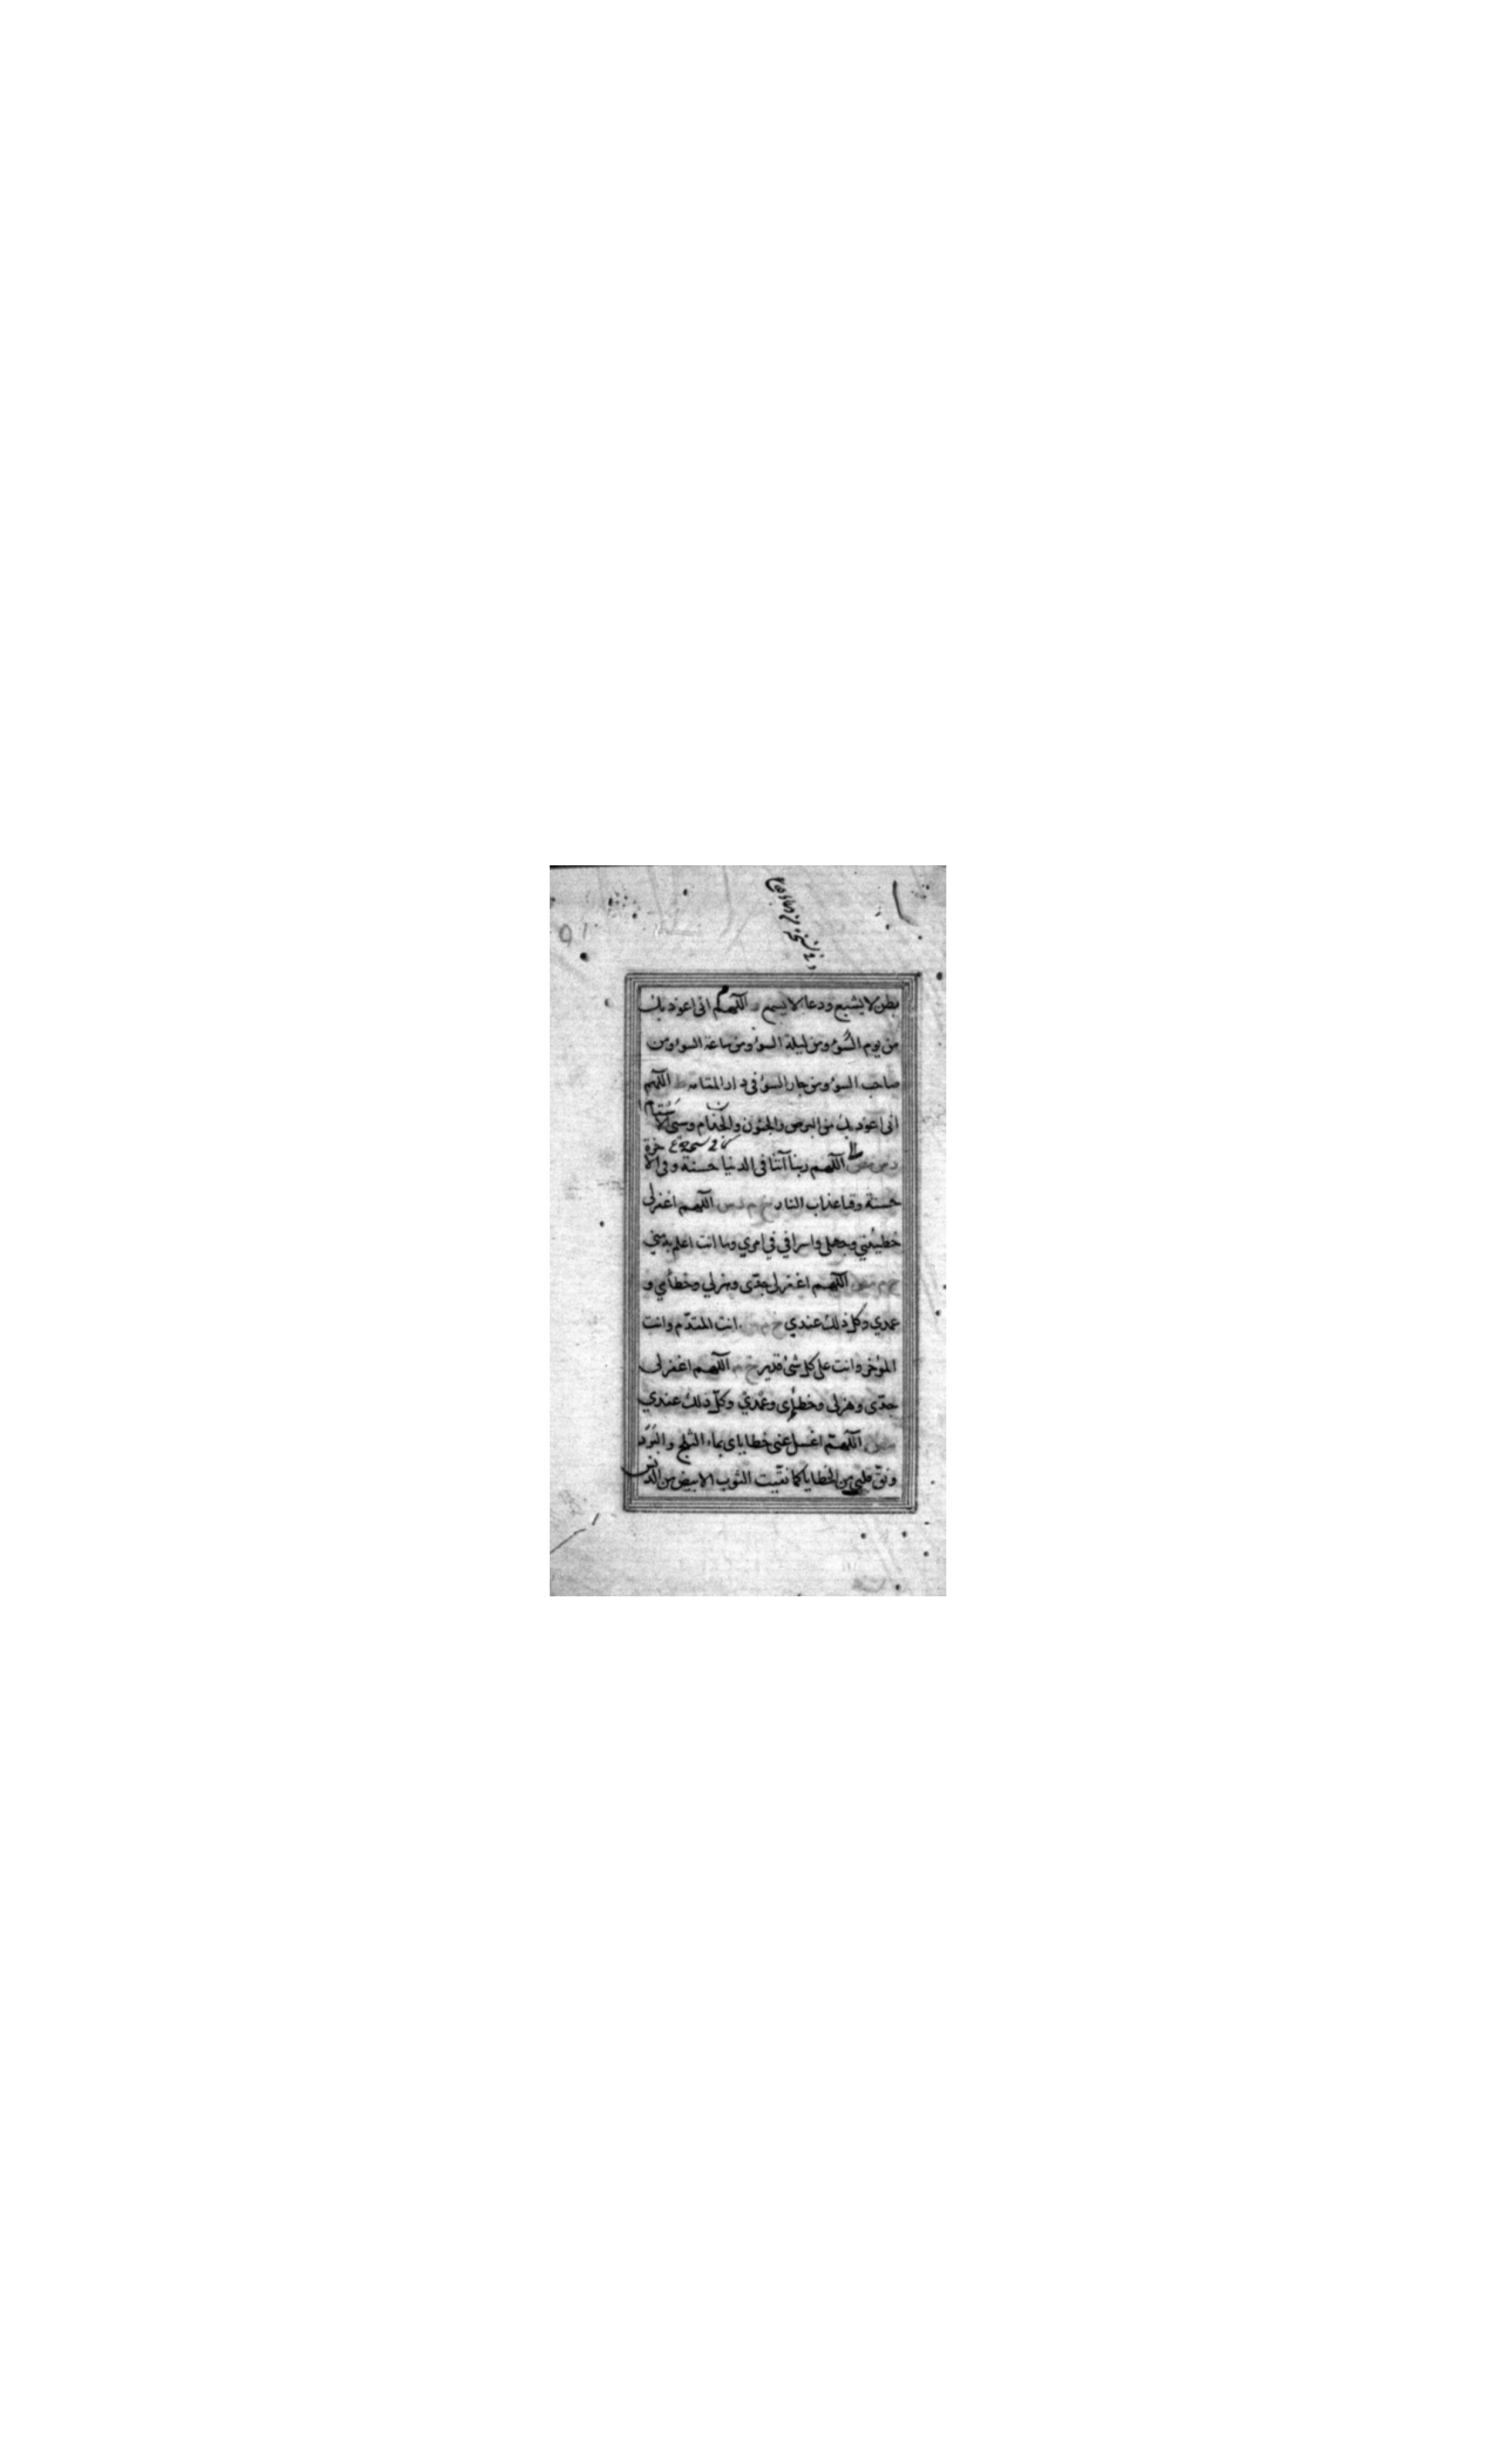 بطن لا يشبع ودعا لا يسمع اللهم انى اعوذ بك
من يوم السوء ومن ليلة السوء ومن ساعة السوء ومن
صاحب السوء ومن جار السوء فى دار المقامة ط اللهم
انى اعوذ بك من البرص والجنون والجذام وسئ الاسقام
د س مص اللهم ربنا آتنا فى الدنيا حسنة وفى الآخرة
حسنة وقنا عذاب النار خ م د س اللهم اغفرلى
خطيئتي وجهلي واسرافي في امري وما انت اعلم به مني
خ م مص اللهم اغفر لى جدّى وهزلي وخطأي و
عمدي وكل ذلك عندي خ م انت المقدّم وانت
المؤخر وانت على كل شئ قدير خ م اللهم اغفرلى
جدّى وهزلى وخطأى وعمدي وكلّ ذلك عندي
مص اللهم اغسل عنى خطاياى بماء الثلج والبَرَد
ونقّ قلبي من الخطايا كما نقّيت الثوب الابيض من الدنس